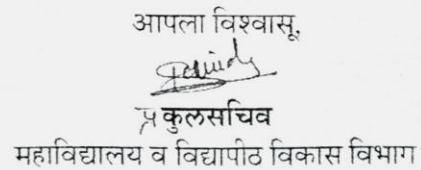 आपला विश्वासू,
प्र कुलसचिव
महाविद्यालय व विद्यापीठ विकास विभाग